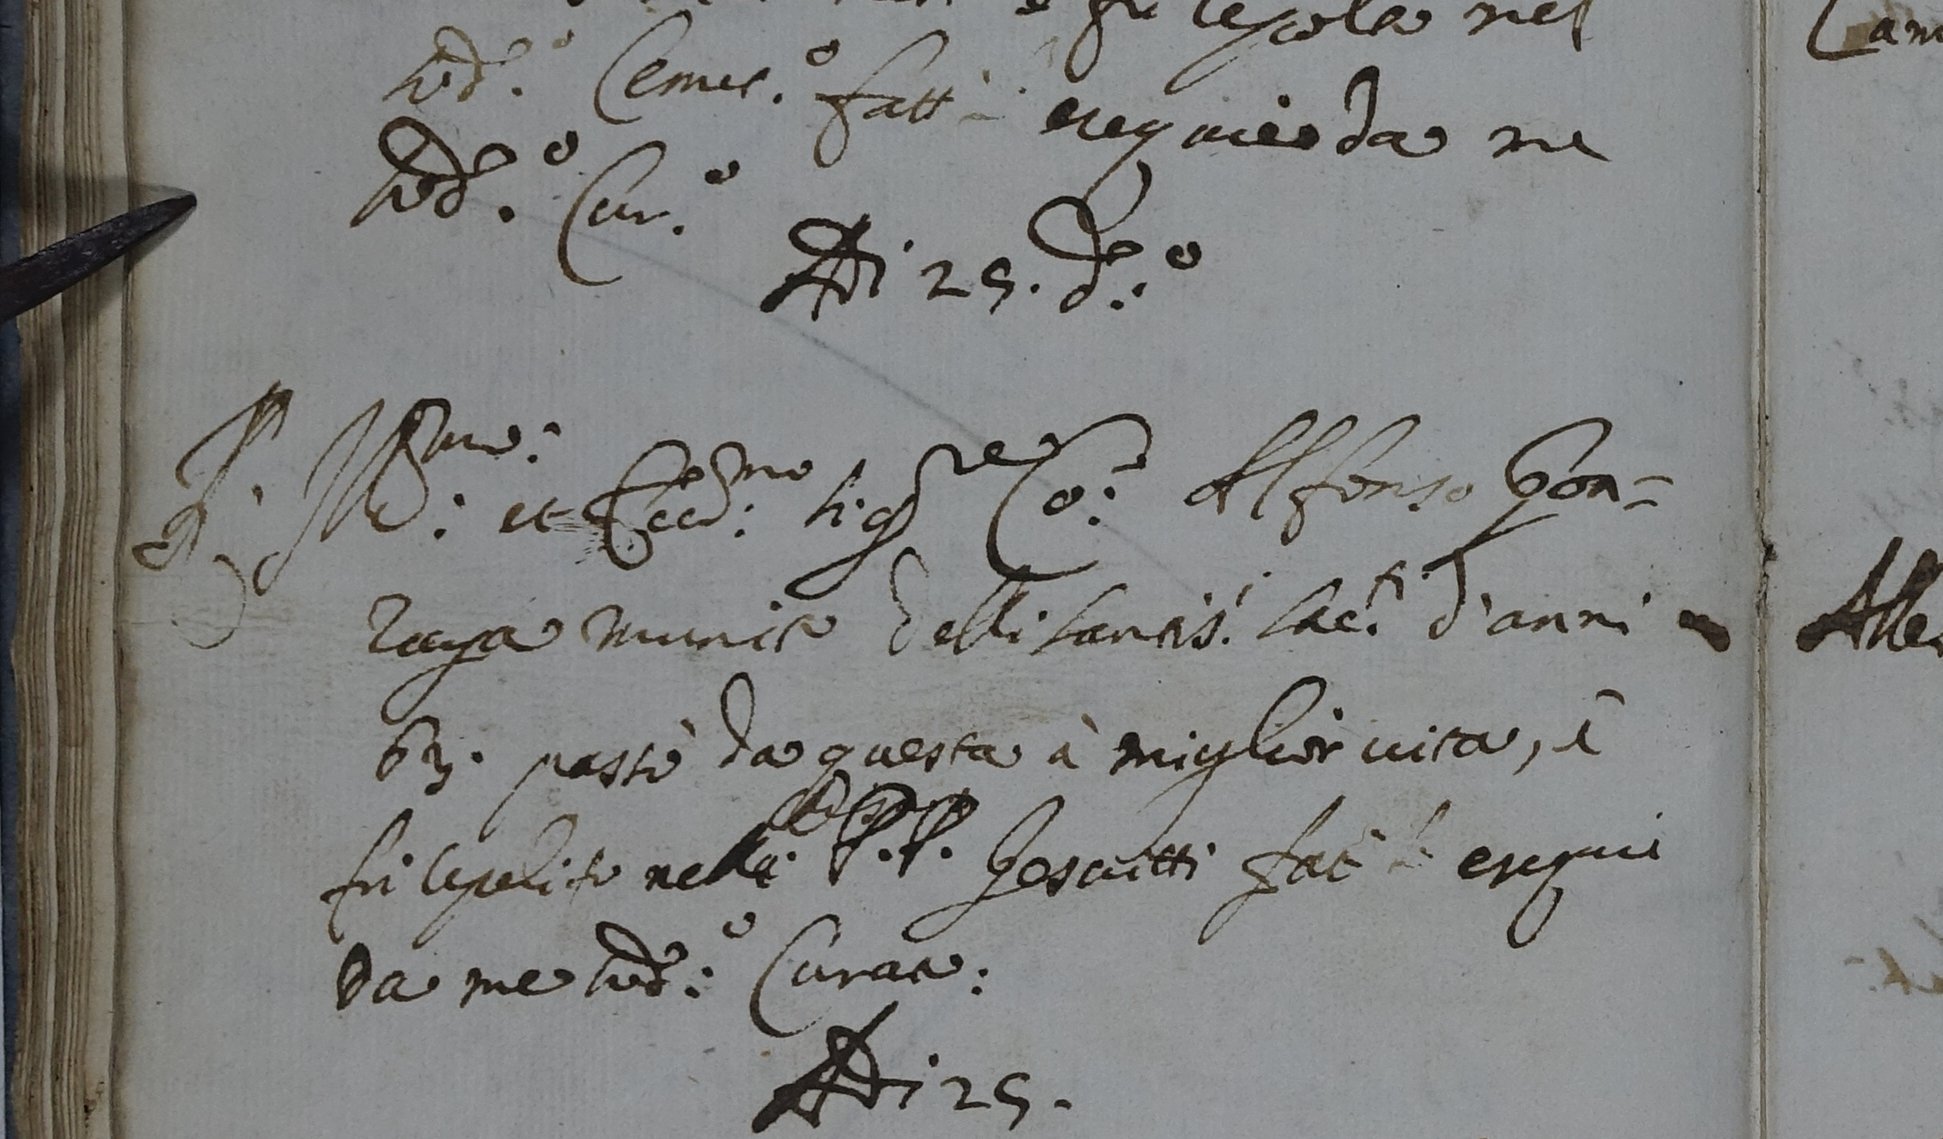 fu sepolta nel
sud.º Cemet.º fatte esequie da me
sud.º Cur.º
Adi 25. d.º
Ill.mo: et Ecc.mo: Sig.re Co: Alfonso Gon=
zaga munito delli Santis.i Sac.ti d'anni
63. passò da questa à miglior vita, è
fù sepelito nella PP. Gesuitti fat esequie
da me sud.º Curat:
Adi 25.
Cam
Alle